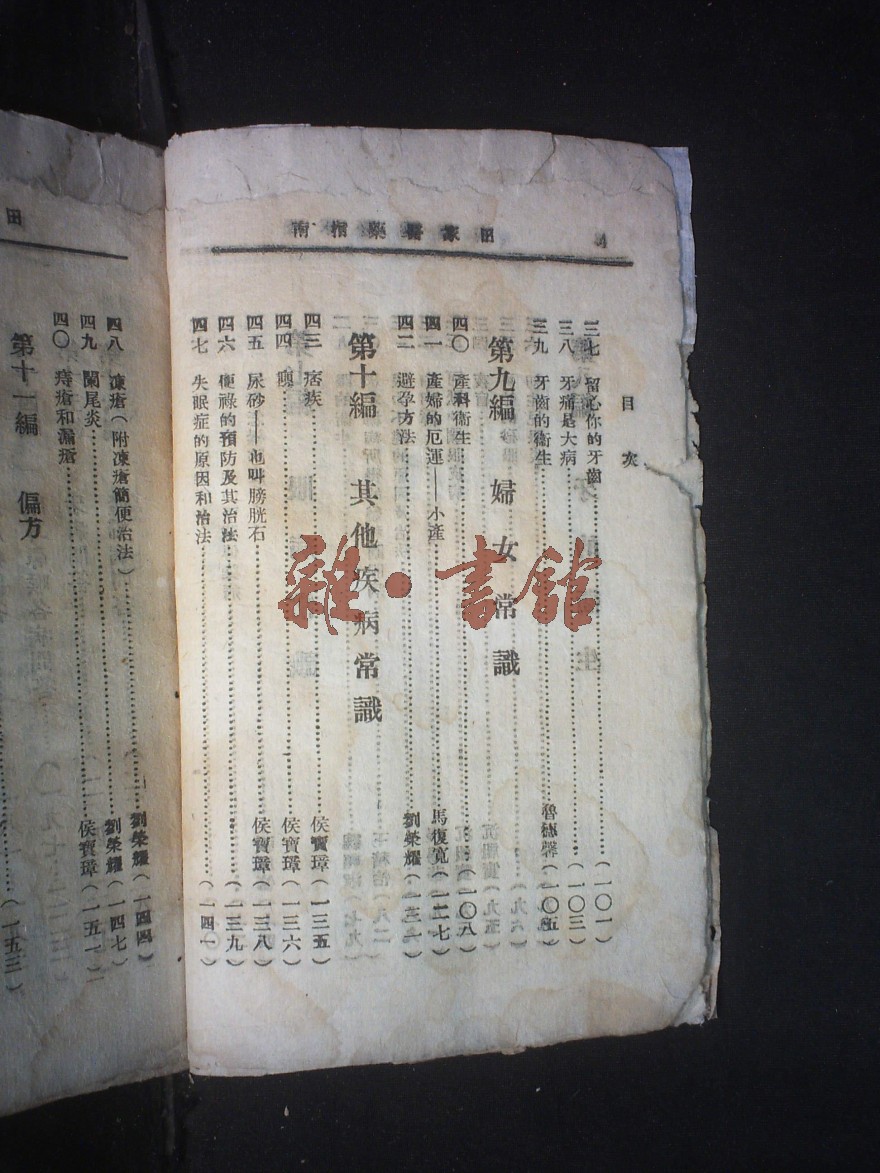 田家醫藥指南
目次
三七 留心你的牙齒……(一〇一)
三八 牙痛是大病……(一〇三)
三九 牙齒的衞生……魯德馨(一〇五)
第九編 婦女常識
四〇 產科衞生……(一〇八)
四一 產婦的厄運——小產……馬復寬(一二七)
四二 避孕方法……劉榮耀(一三一)
第十編 其他疾病常識
四三 痞疾……侯寶璋(一三五)
四四 ……侯寶璋(一三六)
四五 尿砂——也叫膀胱石……侯寶璋(一三八)
四六 便祕的預防及其治法……(一三九)
四七 失眠症的原因和治法……(一四一)
田
四八 凍瘡(附凍瘡簡便治法)……劉榮耀(一四四)
四九 闌尾炎……劉榮耀(一四七)
四〇 痔瘡和漏瘡……侯寶璋(一五一)
第十一編 偏方
(一五三)
雜·書館